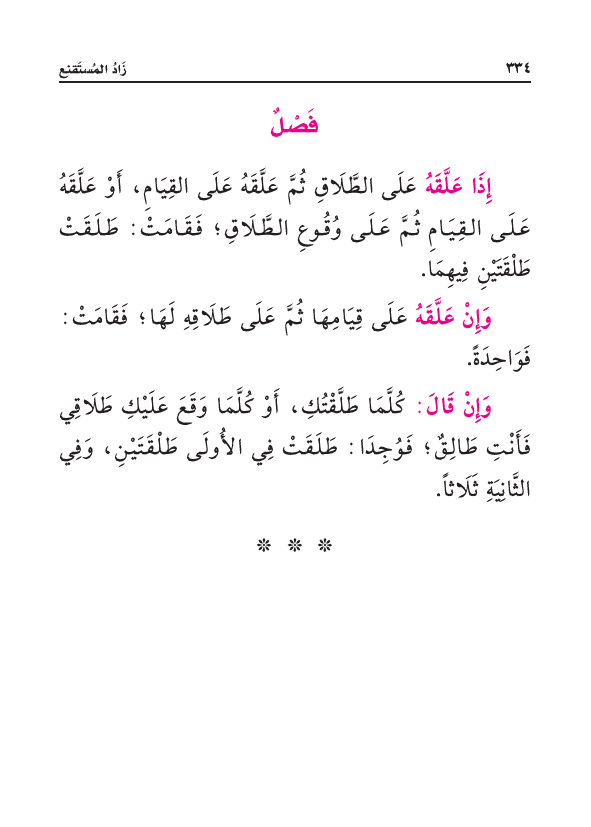 ٣٣٤ زَادُ المُستَقنِع
فَصْلٌ
إِذَا عَلَّقَهُ عَلَى الطَّلَاقِ ثُمَّ عَلَّقَهُ عَلَى القِيَامِ، أَوْ عَلَّقَهُ
عَلَى القِيَامِ ثُمَّ عَلَى وُقُوعِ الطَّلَاقِ؛ فَقَامَتْ: طَلَقَتْ
طَلْقَتَيْنِ فِيهِمَا.
وَإِنْ عَلَّقَهُ عَلَى قِيَامِهَا ثُمَّ عَلَى طَلَاقِهِ لَهَا؛ فَقَامَتْ:
فَوَاحِدَةً.
وَإِنْ قَالَ: كُلَّمَا طَلَّقْتُكِ، أَوْ كُلَّمَا وَقَعَ عَلَيْكِ طَلَاقِي
فَأَنْتِ طَالِقٌ؛ فَوُجِدَا: طَلَقَتْ فِي الأُولَى طَلْقَتَيْنِ، وَفِي
الثَّانِيَةِ ثَلَاثاً.